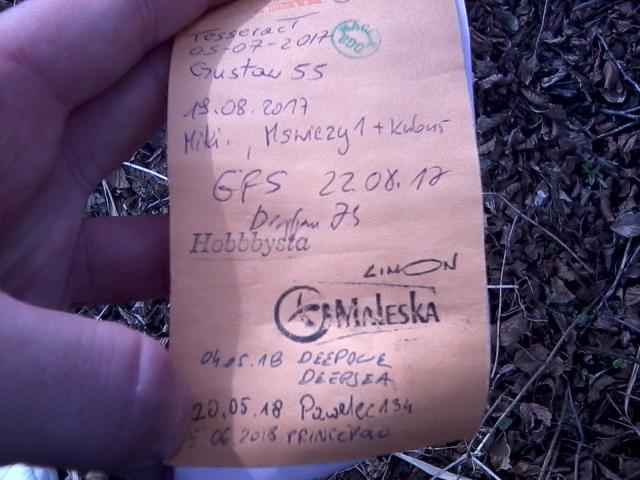 TesseracT
05-07-2017
Gustav 55
19.08.2017
Miki., Mswiczy1 + Kubuś
GFS 22.08.17
JS
Hobbbysta
LIMON
KAMALESKA
04.05.18 DEEPOLIE
DEEPSEA
20.05.18 Pawelec134
06 2018 PRINCIPAO